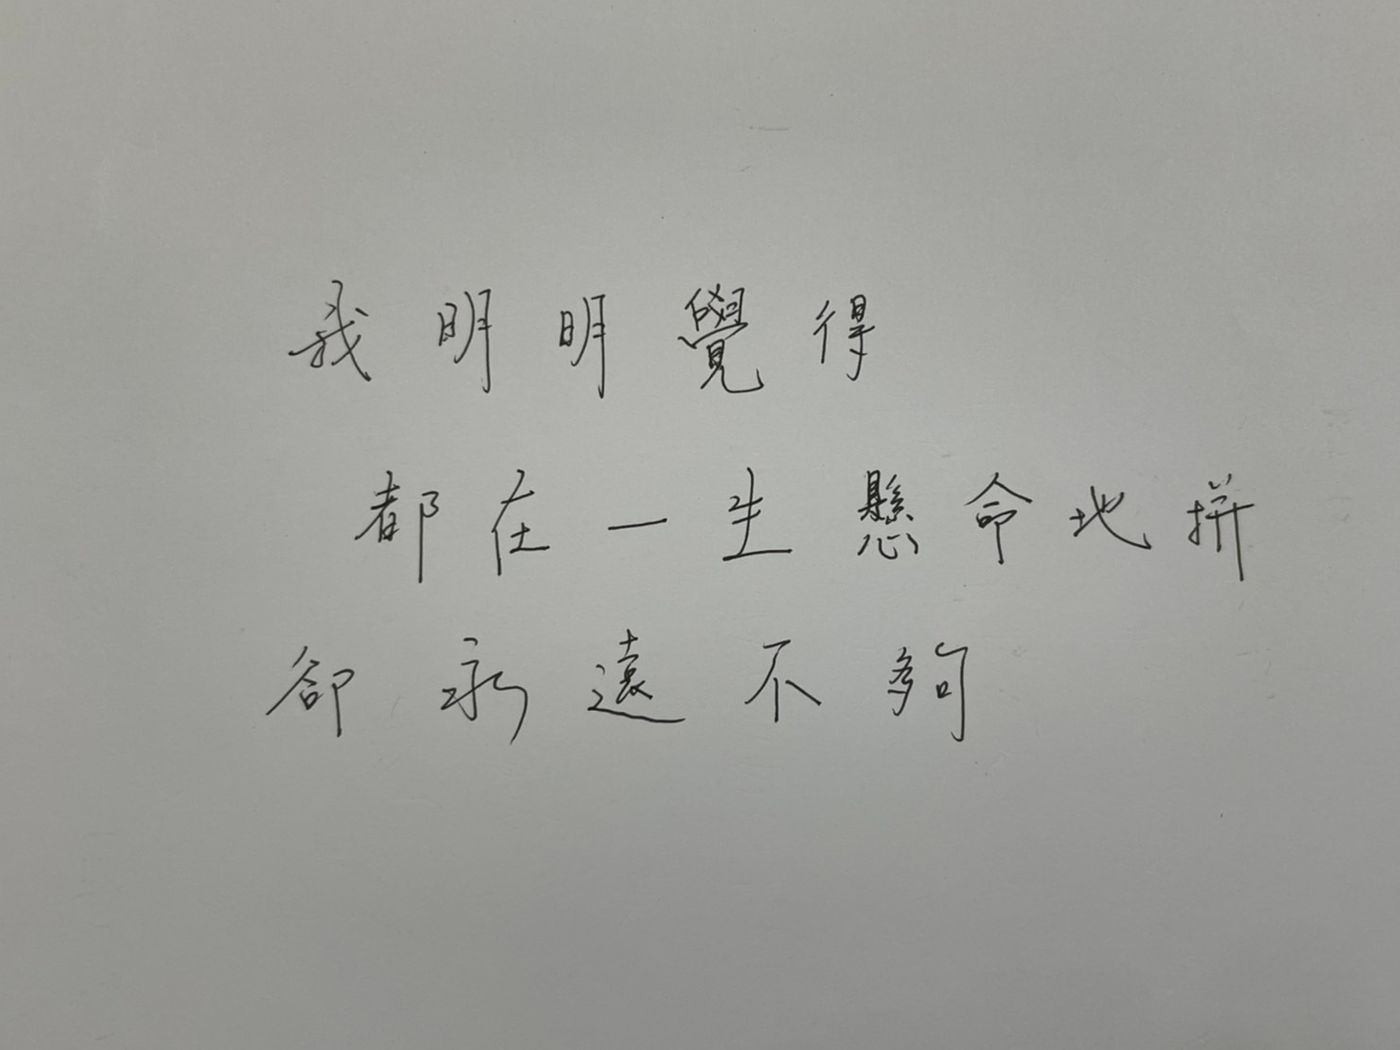 我明明覺得
都在一生懸命地拼
卻永遠不夠